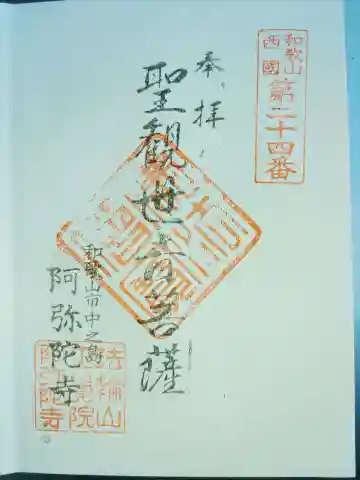 和歌山
西國
第二十四番
奉拝
聖觀世音菩薩
和歌山市中之島
阿弥陀寺
法輪山
院
阿弥陀寺